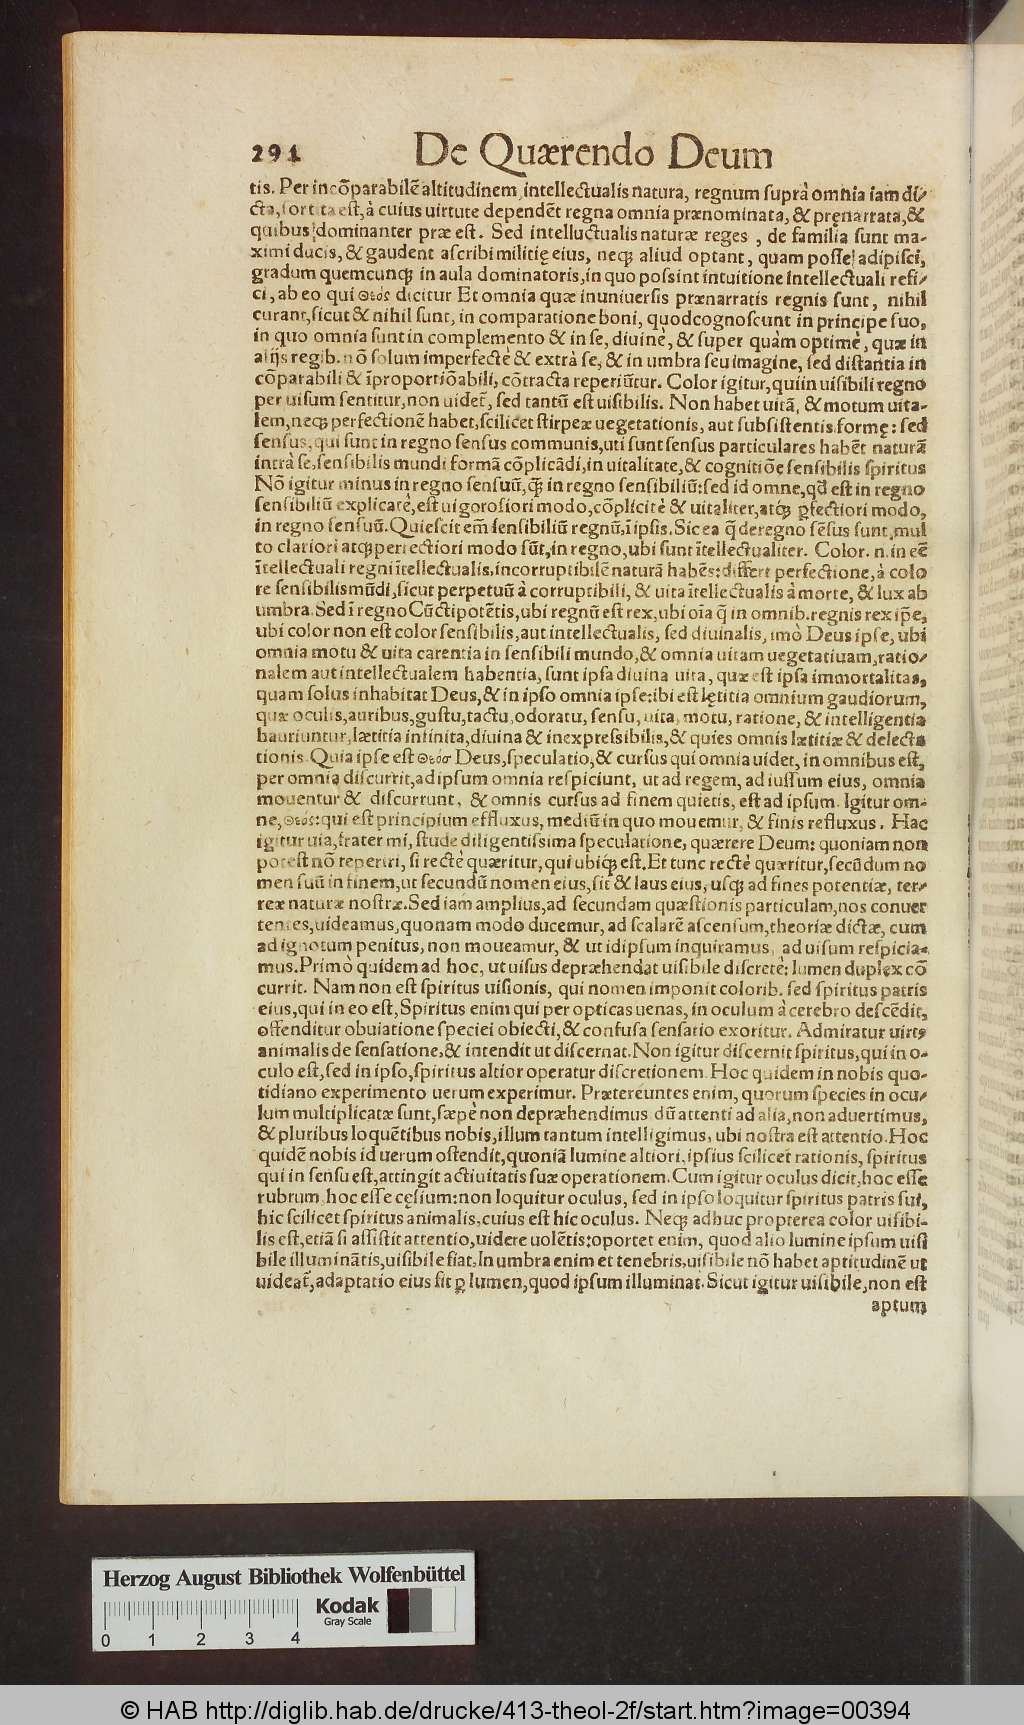 294 De Quærendo Deum
tis. Per incōparabilē altitudinem, intellectualis natura, regnum suprà omnia iam di/
cta, sortita est, à cuius uirtute dependēt regna omnia prænominata, & pręnarrata, &
quibus dominanter præ est. Sed intelluctualis naturæ reges , de familia sunt ma-
ximi ducis, & gaudent ascribi militię eius, neqꝫ aliud optant, quam posse adipisci,
gradum quemcunqꝫ in aula dominatoris, in quo possint intuitione intellectuali refi/
ci, ab eo qui Θεός dicitur Et omnia quæ in uniuersis prænarratis regnis sunt, nihil
curant, sicut & nihil sunt, in comparatione boni, quod cognoscunt in principe suo,
in quo omnia sunt in complemento & in se, diuinè, & super quàm optimè, quæ in
alijs regib. nō solum imperfectè & extrà se, & in umbra seu imagine, sed distantia in
cōparabili & īproportiōabili, cōtracta reperiūtur. Color igitur, qui in uisibili regno
per uisum sentitur, non uidet̃, sed tantū est uisibilis. Non habet uitā, & motum uita-
lem, neqꝫ perfectionē habet, scilicet stirpeæ uegetationis, aut subsistentis formę: sed
sensus, qui sunt in regno sensus communis, uti sunt sensus particulares habēt naturā
intrà se, sensibilis mundi formā cōplicādi, in uitalitate, & cognitiōe sensibilis spiritus
Nō igitur minus in regno sensuū, q̄ꝫ in regno sensibiliū: sed id omne, qđ est in regno
sensibiliū explicatè, est uigorosiori modo, cōplicitè & uitaliter, atqꝫ ꝑfectiori modo,
in regno sensuū. Quiescit em̄ sensibiliū regnū, ī ipsis. Sic ea q̄ de regno sēsus sunt, mul
to clariori atqꝫ perfectiori modo sūt, in regno, ubi sunt ītellectualiter. Color. n. in eē
ītellectuali regni ītellectualis, incorruptibilē naturā habēs: differt perfectione, à colo
re sensibilis mūdi, sicut perpetuū à corruptibili, & uita ītellectualis à morte, & lux ab
umbra. Sed ī regno Cūctipotētis, ubi regnū est rex, ubi oīa q̄ in omnib. regnis rex ip̄e,
ubi color non est color sensibilis, aut intellectualis, sed diuinalis, imò Deus ipse, ubi
omnia motu & uita carentia in sensibili mundo, & omnia uitam uegetatiuam, ratio/
nalem aut intellectualem habentia, sunt ipsa diuina uita, quæ est ipsa immortalitas,
quam solus inhabitat Deus, & in ipso omnia ipse: ibi est lętitia omnium gaudiorum,
quæ oculis, auribus, gustu, tactu, odoratu, sensu, uita, motu, ratione, & intelligentia
hauriuntur, lætitia infinita, diuina & inexpressibilis, & quies omnis lætitiæ & delecta
tionis. Quia ipse est Θεόσ Deus, speculatio, & cursus qui omnia uidet, in omnibus est,
per omnia discurrit, ad ipsum omnia respiciunt, ut ad regem, ad iussum eius, omnia
mouentur & discurrunt, & omnis cursus ad finem quietis, est ad ipsum. Igitur om-
ne, Θεός: qui est principium effluxus, mediū in quo mouemur, & finis refluxus. Hac
igitur uia, frater mi, stude diligentissima speculatione, quærere Deum: quoniam non
potest nō reperiri, si rectè quæritur, qui ubiqꝫ est. Et tunc rectè quæritur, secūdum no
men suū in finem, ut secundū nomen eius, sit & laus eius, usqꝫ ad fines potentiæ, ter/
reæ naturæ nostræ. Sed iam amplius, ad secundam quæstionis particulam, nos conuer
tentes, uideamus, quonam modo ducemur, ad scalarē ascensum, theoriæ dictæ, cum
ad ignotum penitus, non moueamur, & ut id ipsum inquiramus, ad uisum respicia-
mus. Primò quidem ad hoc, ut uisus depræhendat uisibile discretè: lumen duplex cō
currit. Nam non est spiritus uisionis, qui nomen imponit colorib. sed spiritus patris
eius, qui in eo est, Spiritus enim qui per opticas uenas, in oculum à cerebro descēdit,
offenditur obuiatione speciei obiecti, & confusa sensatio exoritur. Admiratur uirtꝰ
animalis de sensatione, & intendit ut discernat. Non igitur discernit spiritus, qui in o-
culo est, sed in ipso, spiritus altior operatur discretionem. Hoc quidem in nobis quo-
tidiano experimento uerum experimur. Prætereuntes enim, quorum species in ocu/
lum multiplicatæ sunt, sæpè non depræhendimus dū attenti ad alia, non aduertimus,
& pluribus loquētibus nobis, illum tantum intelligimus, ubi nostra est attentio. Hoc
quidē nobis id uerum ostendit, quoniā lumine altiori, ipsius scilicet rationis, spiritus
qui in sensu est, attingit actiuitatis suæ operationem. Cum igitur oculus dicit, hoc esse
rubrum, hoc esse cęsium: non loquitur oculus, sed in ipso loquitur spiritus patris sui,
hic scilicet spiritus animalis, cuius est hic oculus. Neqꝫ adhuc propterea color uisibi-
lis est, etiā si assistit attentio, uidere uolētis: oportet enim, quod alio lumine ipsum uisi
bile illuminātis, uisibile fiat. In umbra enim et tenebris, uisibile nō habet aptitudinē ut
uideat̃, adaptatio eius fit ꝑ lumen, quod ipsum illuminat. Sicut igitur uisibile, non est
aptum
Herzog August Bibliothek Wolfenbüttel
Kodak
Gray Scale
0 1 2 3 4
© HAB http://diglib.hab.de/drucke/413-theol-2f/start.htm?image=00394